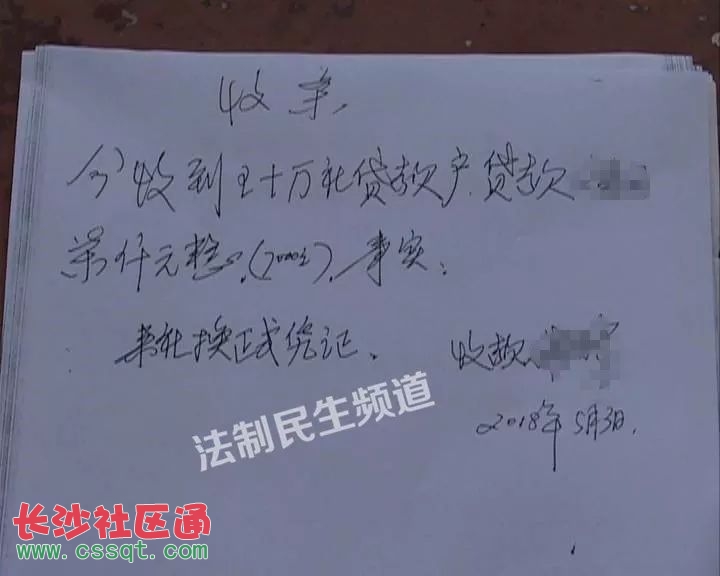 收条
今收到王十万社贷款户贷款
柒仟元整.(7000元).事实:
来社换正式凭记、
收款
2018年5月3日.
法制民生频道
长沙社区通
www.cssqt.com